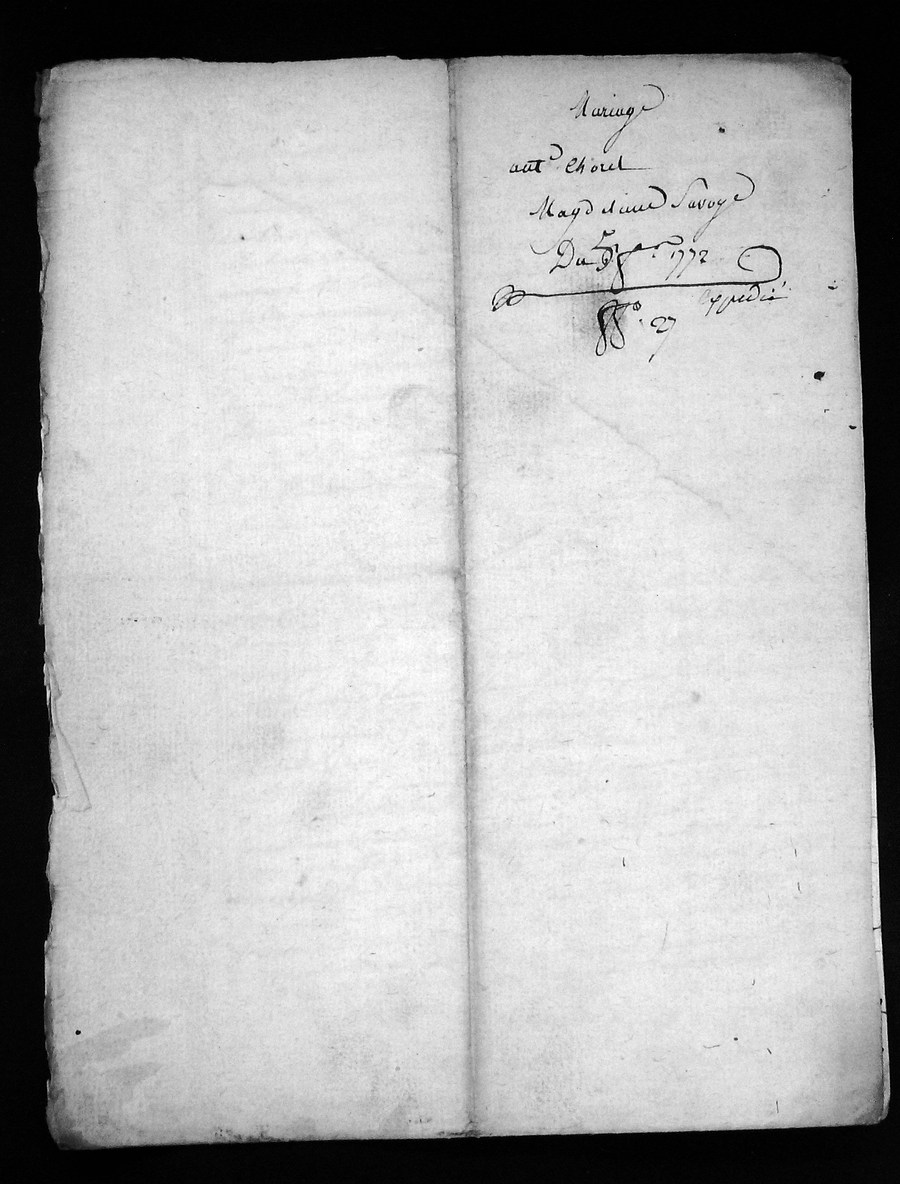 Mariage
ant.e Chorel
Magdelaine Savoye
Du 5 1772
Expedié
No. 27